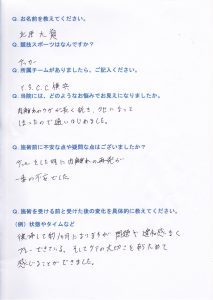 Q. お名前を教えてください。
Q. 競技スポーツはなんですか?
サッカー
Q. 所属チームがありましたら、ご記入ください。
Y.S.C.C 横浜
Q. 当院には、どのようなお悩みでお見えになりましたか。
肉離れのケガが長く続き、クセになって
しまったので通いはじめました。
Q. 施術前に不安な点や疑問な点はございましたか?
プレーをした時に肉離れの再発が
一番の不安でした
Q. 施術を受ける前と受けた後の変化を具体的に教えてください。
(例)状態やタイムなど
復帰して約 になりますが問題なく違和感なく
プレーできている。そしてケアの大切さを改めて
感じることができました。